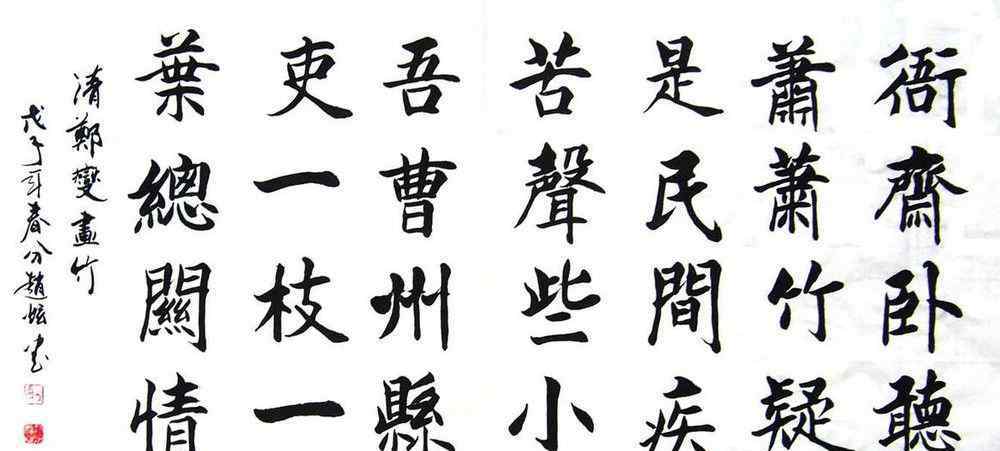 衙齋卧聽
蕭蕭竹疑
是民間疾
苦聲些小
吾曹州縣
吏一枝一
葉總關情
清鄭燮畫竹
戊子年春分趙竑书